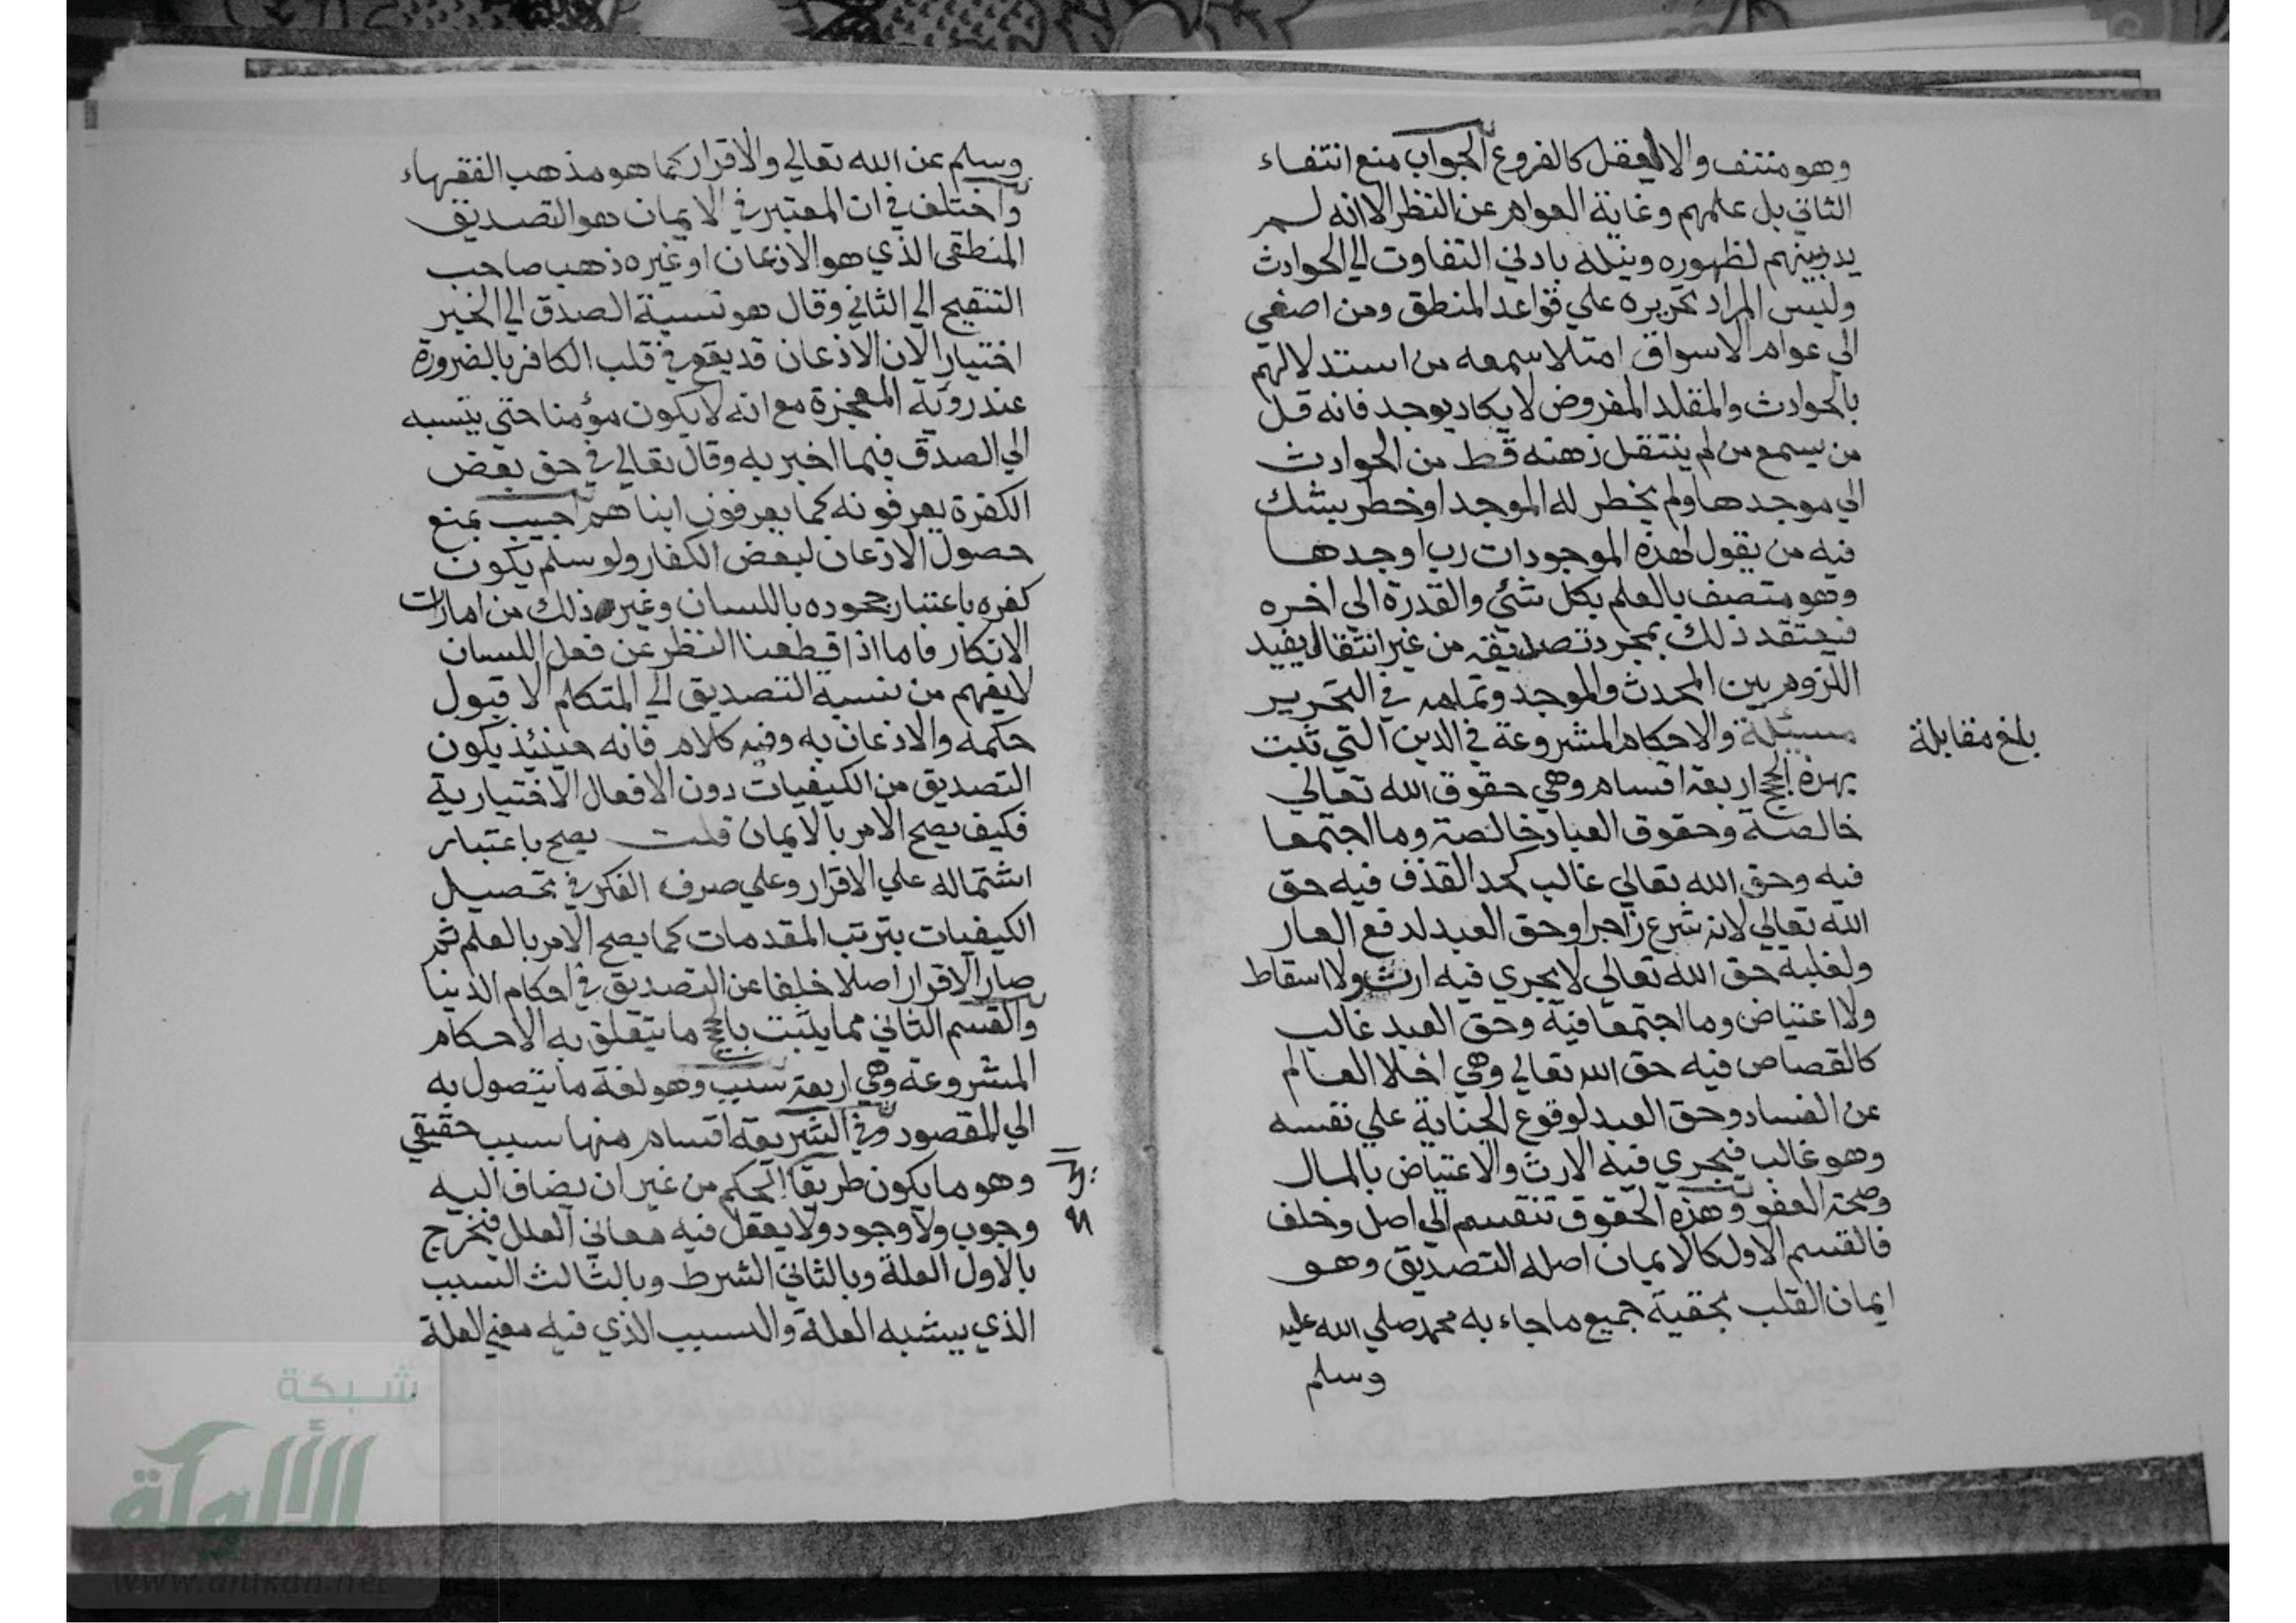 وهو منتف والا لنقل كالفروع الجواب منع انتفاء
الثاني بل علمهم وغاية العوام عن النظر الا انه لم
يدر بينهم لظهوره ونيله بادني التفاوت الي الحوادث
وليس المراد تحريره علي قواعد المنطق ومن اصغي
الي عوام الاسواق امتلا سمعه من استدلالهم
بالحوادث والمقلد المفروض لا يكاد يوجد فانه قل
من يسمع من لم ينتقل ذهنه قط من الحوادث
الي موجدها ولم يخطر له الموجد او خطر بشك
فيه من يقول لهذه الموجودات رب اوجدها
وهو متصف بالعلم بكل شئي والقدرة الي اخره
فيعتقد ذلك بمجرد تصديقه من غير انتقال يفيد
اللزوم بين المحدث والموجد وتمامه في التحرير
مسئلة والاحكام المشروعة في الدين التي تثبت
بهذه الحجج اربعة اقسام وهي حقوق الله تعالي
خالصة وحقوق العباد خالصة وما اجتمعا
فيه وحق الله تعالي غالب كحد القذف فيه حق
الله تعالي لانه شرع زاجرا وحق العبد لدفع العار
ولغلبة حق الله تعالي لا يجري فيه ارث ولا اسقاط
ولا اعتياض وما اجتمعا فيه وحق العبد غالب
كالقصاص فيه حق الله تعالي وهي اخلا العالم
عن الفساد وحق العبد لوقوع الجناية علي نفسه
وهو غالب فيجري فيه الارث والاعتياض بالمال
وصحة العفو وهذه الحقوق تنقسم الي اصل وخلف
فالقسم الاول كالايمان اصله التصديق وهو
ايمان القلب بحقية جميع ما جاء به محمد صلي الله عليه
وسلم
بلغ مقابلة
وسلم عن الله تعالي والاقرار كما هو مذهب الفقهاء
واختلف في ان المعتبر في الايمان هو التصديق
المنطقي الذي هو الاذعان او غيره ذهب صاحب
التنقيح الي الثاني وقال هو نسبة الصدق الي الخبر
اختيارا لان الاذعان قد يقع في قلب الكافر بالضرورة
عند روية المعجزة مع انه لا يكون مؤمنا حتي ينسبه
الي الصدق فيما اخبر به وقال تعالي في حق بعض
الكفرة يعرفونه كما يعرفون ابناهم اجيب بمنع
حصول الاذعان لبعض الكفار ولو سلم يكون
كفره باعتبار جحوده باللسان وغير ذلك من امارات
الانكار فاما اذا قطعنا النظر عن فعل اللسان
لا يفهم من نسبة التصديق الي المتكلم الا قبول
حكمه والاذعان به وفيه كلام فانه حينئذ يكون
التصديق من الكيفيات دون الافعال الاختيارية
فكيف يصح الامر بالايمان قلت يصح باعتبار
اشتماله علي الاقرار وعلي صرف الفكر في تحصيل
الكيفيات بترتب المقدمات كما يصح الامر بالعلم ثم
صار الاقرار اصلا خلفا عن التصديق في احكام الدنيا
والقسم الثاني مما يثبت بالحجج ما يتعلق به الاحكام
المشروعة وهي اربعة سبب وهو لغة ما يتصول به
الي المقصود وفي الشريعة اقسام منها سبب حقيقي
وهو ما يكون طريقا للحكم من غير ان يضاف اليه
وجوب ولا وجود ولا يعقل فيه معاني العلل فيخرج
بالاول العلة وبالثاني الشرط وبالثالث السبب
الذي يشبه العلة والسبب الذي فيه معني العلة
شبكة
الألوكة
www.alukah.net